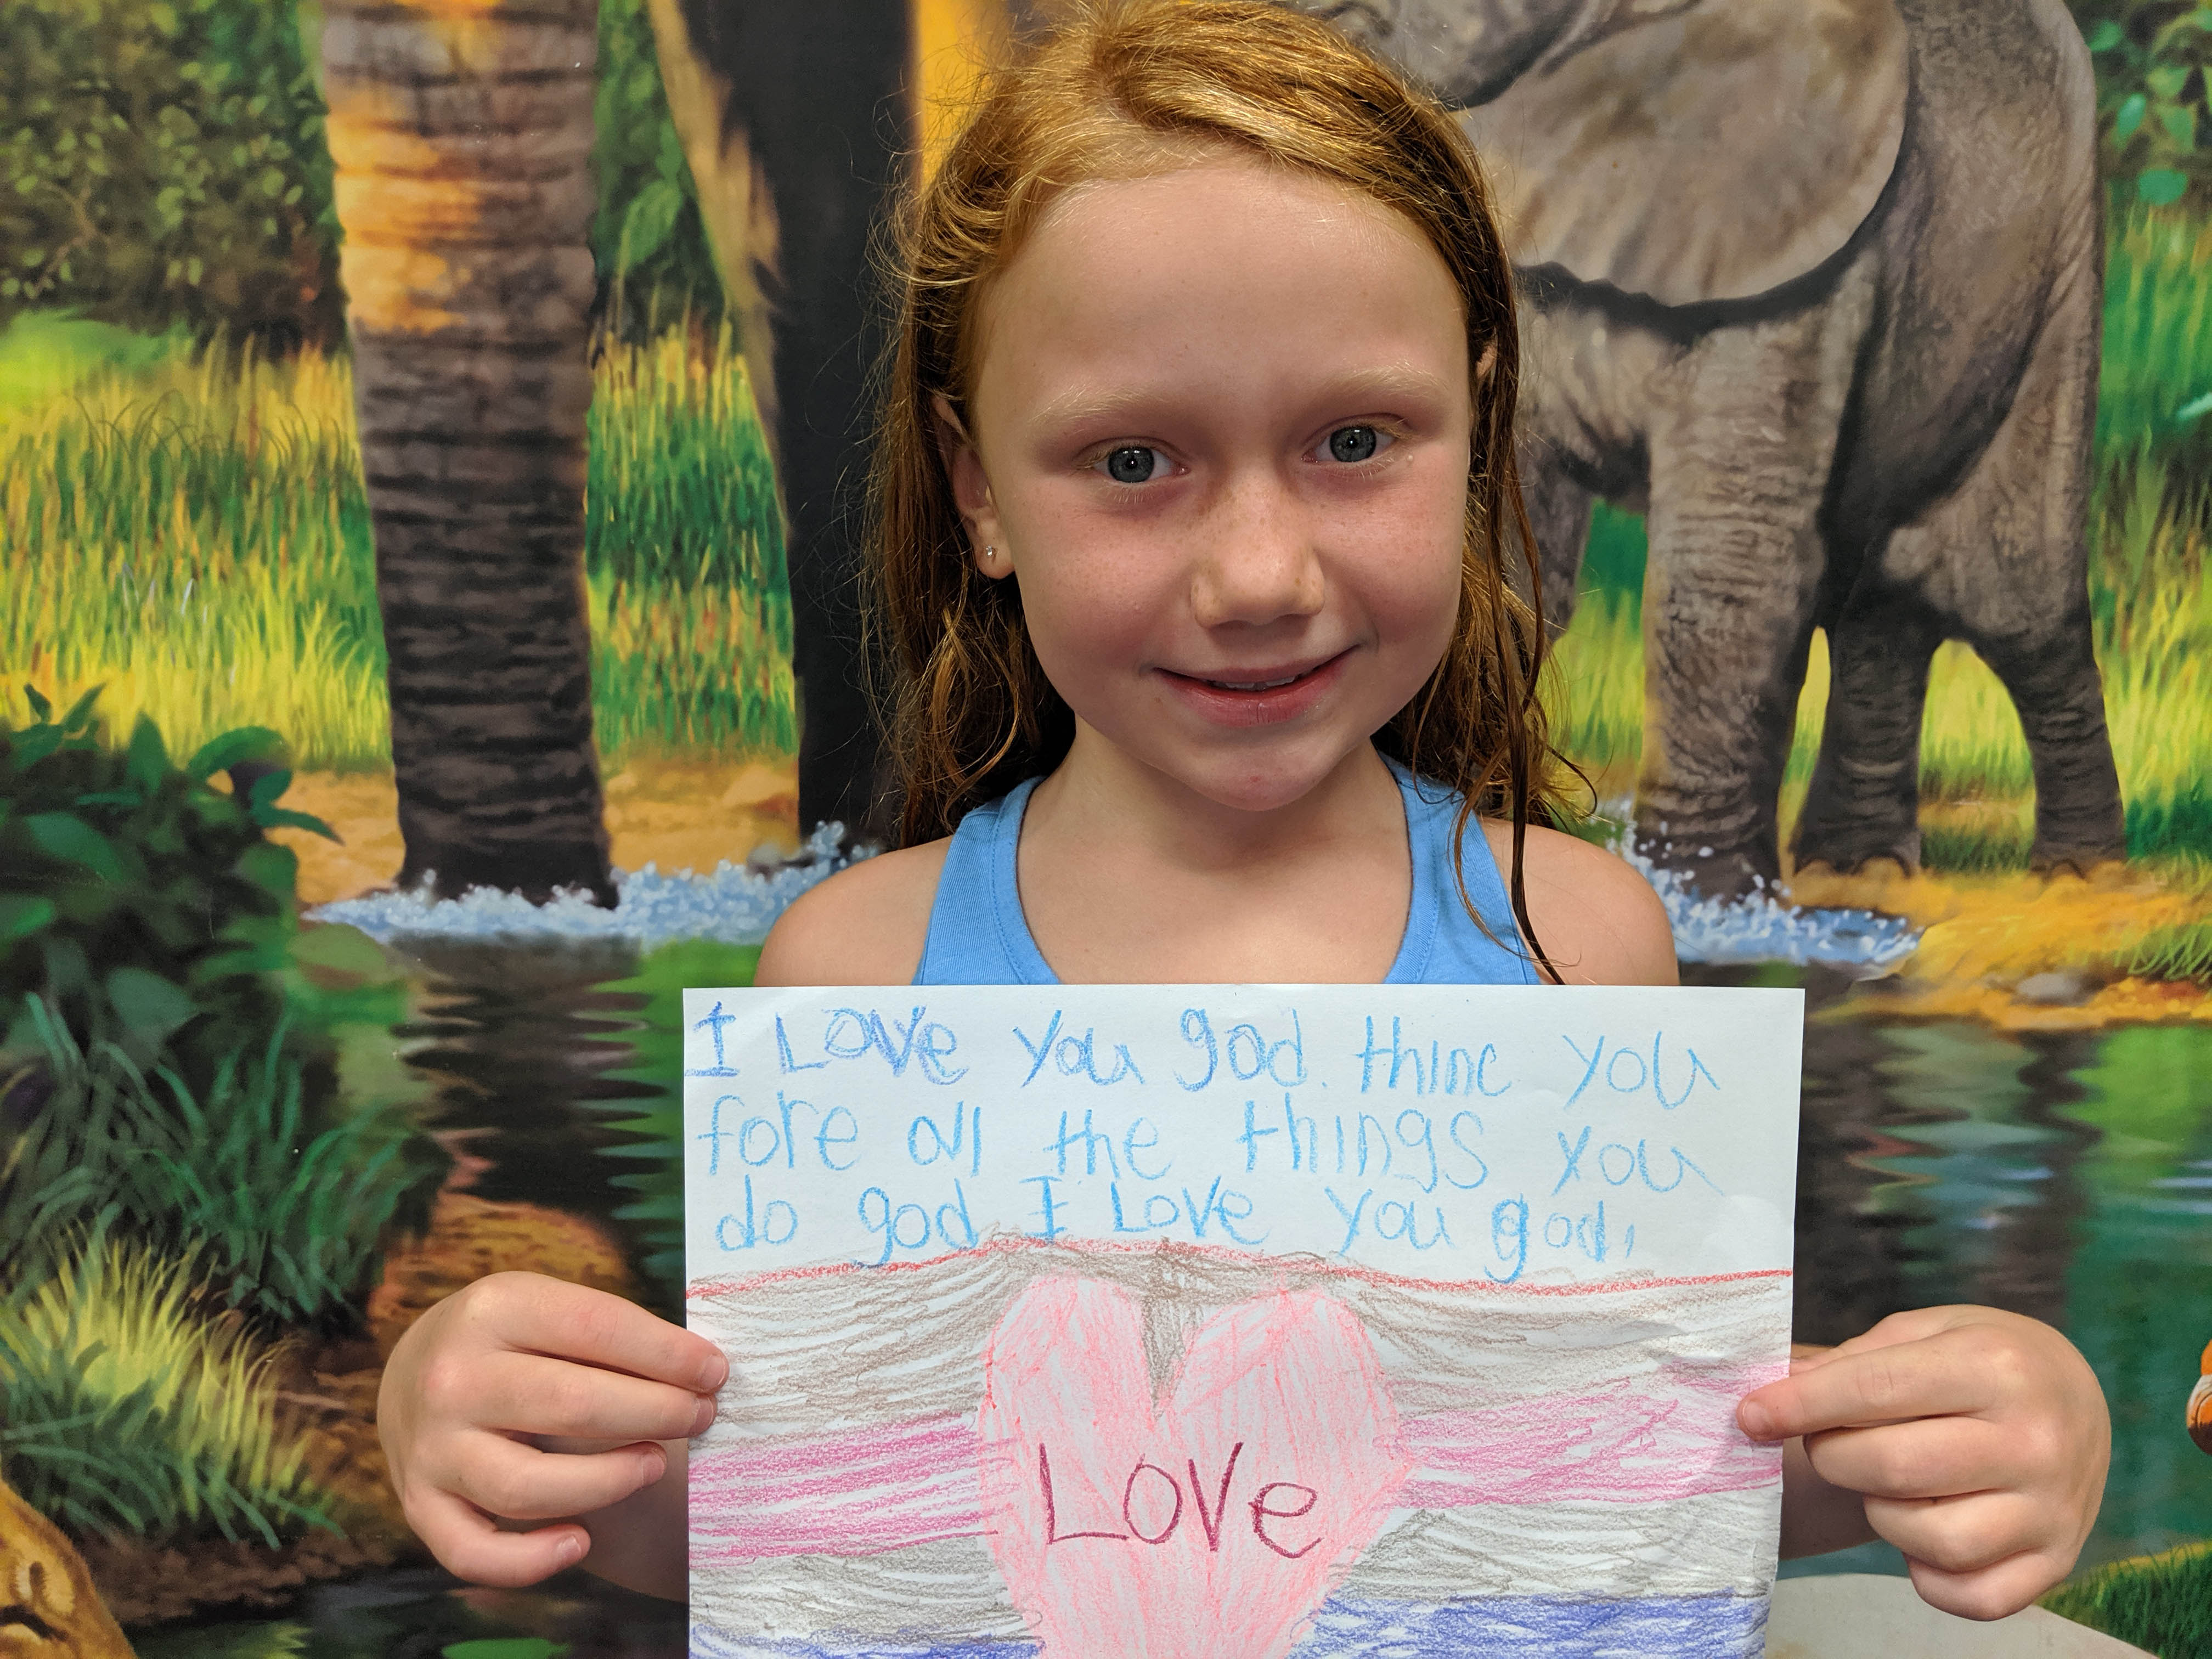 I Love you god. thinc you
fore all the things you
do god I Love you god,
Love